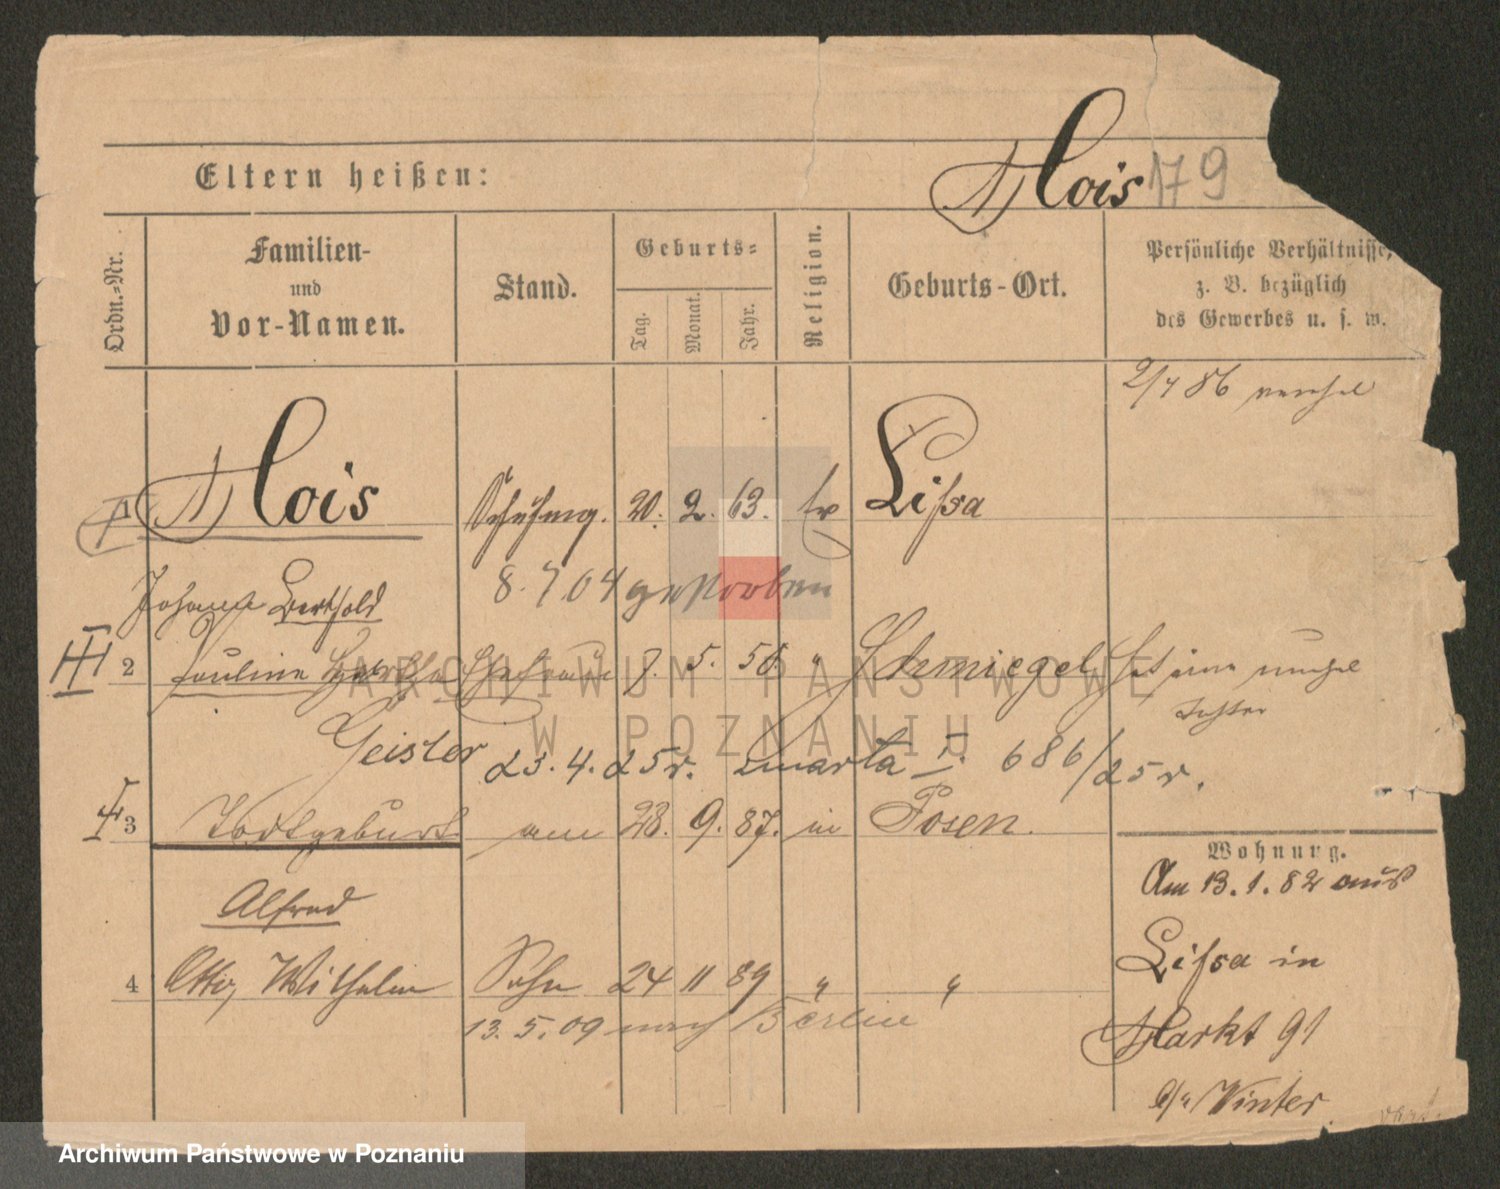 Eltern heißen:
Alois 179
Ordn.-Nr.
Familien-
und
Vor-Namen.
Stand.
Geburts-
Tag.
Monat.
Jahr.
Religion.
Geburts-Ort.
Persönliche Verhältnisse,
z. B. bezüglich
des Gewerbes u. s. w.
2/7 86
1 Alois 20. 2. 63. ev Lissa
Johann Berthold
8. 7 04 gestorben
2 Pauline Bertha Ehefrau 7. 5. 56. " Schmiegel hat eine unehel
Tochter
Geister 23. 4. 25 v. Quarta I. 686/25 v.
3 Todtgeburt am 28. 9. 87. in Posen.
Wohnung.
Am 13. 1. 82 aus
Lissa in
Markt 91
b/ Winter
Alfred
4 Otto, Wilhelm Sohn 24 11 89 " "
13. 5. 09 nach Berlin
ARCHIWUM PAŃSTWOWE
W POZNANIU
Archiwum Państwowe w Poznaniu